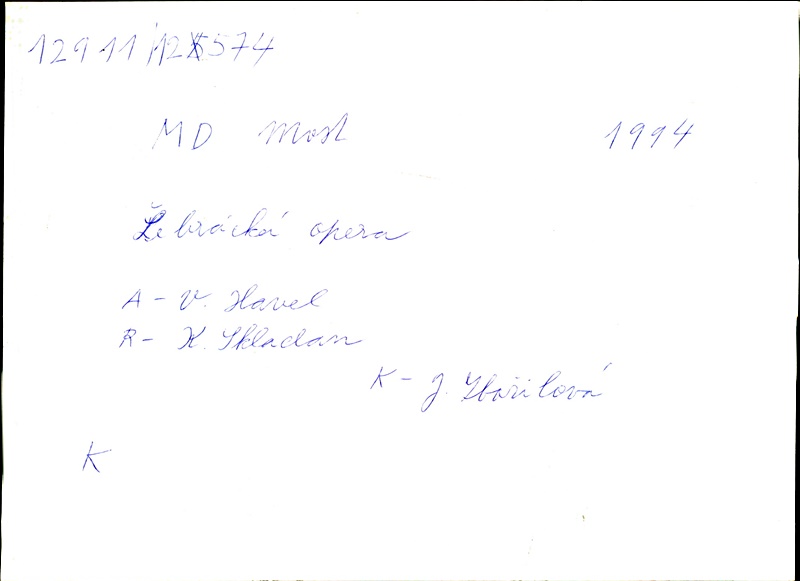 12911
MD Most 1994
Žebrácká opera
A - V. Havel
R - K. Skladan
K - J. Zbořilová
K